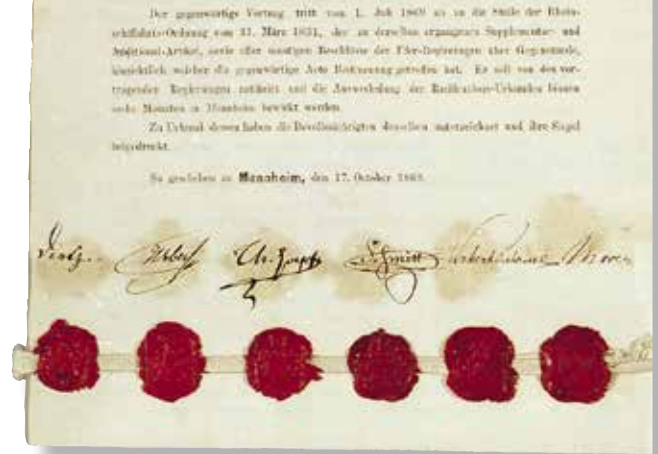 Der gegenwärtige Vertrag tritt vom 1. Juli 1869 an an die Stelle der Rhein-
schiffahrts-Ordnung vom 31. März 1831, der zu derselben ergangenen Supplementar- und
Additional-Artikel, sowie aller sonstigen Beschlüsse der Ufer-Regierungen über Gegenstände,
hinsichtlich welcher die gegenwärtige Acte Bestimmung getroffen hat. Er soll von den ver-
tragenden Regierungen ratificirt und die Auswechslung der Ratifications-Urkunden binnen
sechs Monaten in Mannheim bewirkt werden.
Zu Urkund dessen haben die Bevollmächtigten denselben unterzeichnet und ihre Siegel
beigedruckt.
So geschehen zu Mannheim, den 17. October 1868.
Dietz. Weber Schmitt